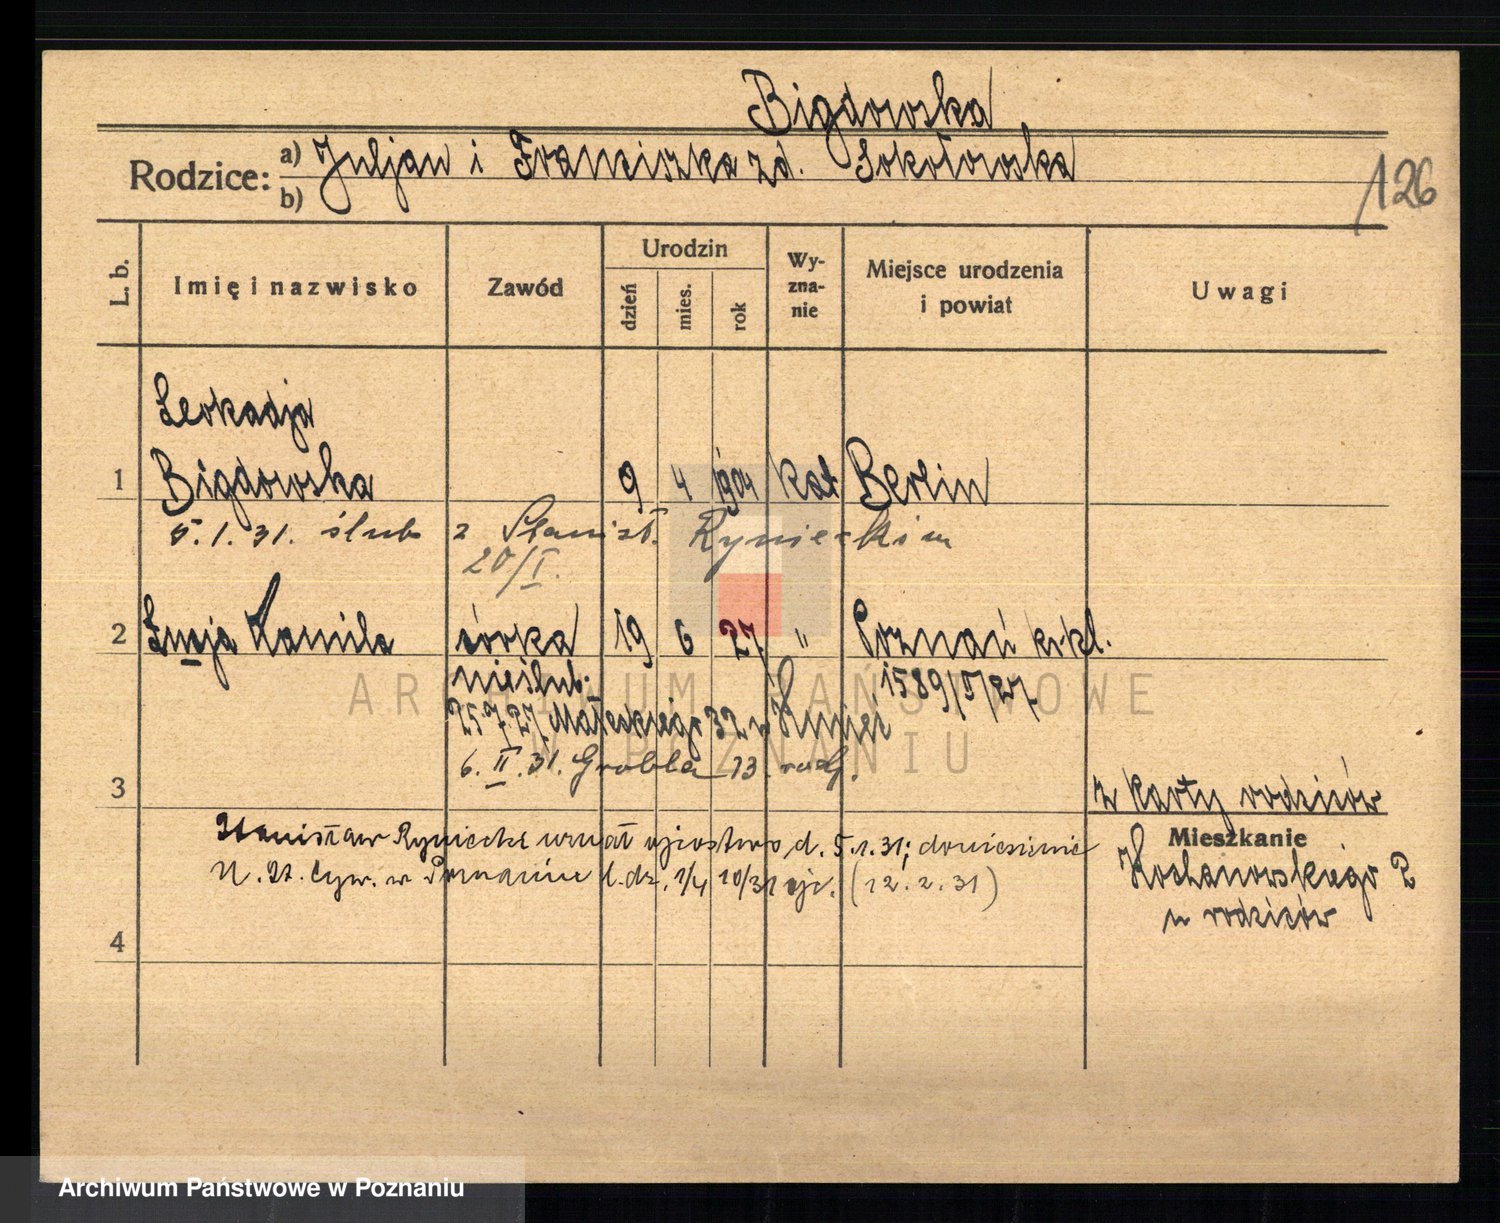 Bigdowska
Rodzice: a) Juljan i Franciszka zd. Sokołowska
b)
126
L. b.
Imię i nazwisko
Zawód
Urodzin
dzień
mies.
rok
Wy-
zna-
nie
Miejsce urodzenia
i powiat
Uwagi
Leokadja
1 Bigdowska 9 4 1904 kat Berlin
5.1.31. ślub z Stanisł. Rynieckim
20/I.
2 Kamila córka 19 6 27 " Poznań
nieślub. 1589/V/27
25.7.27. Małeckiego 32
6.II.31. Grobla 13
3
z karty rodziców
Stanisław Ryniecki uznał ojcostwo d. 5.1.31; doniesienie
U. St. Cyw. w Poznaniu l.dz. 1/4 10/31 ojc. (12.2.31)
Mieszkanie
Kochanowskiego 2
u rodziców
4
ARCHIWUM PAŃSTWOWE
W POZNANIU
Archiwum Państwowe w Poznaniu